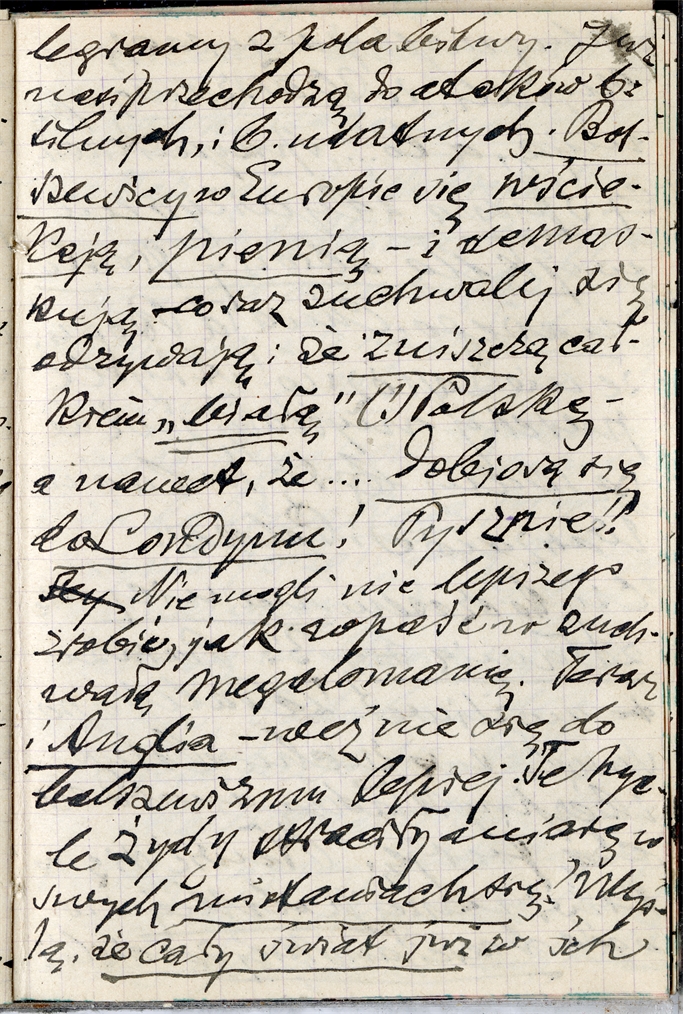 legramy z pola bitwy. Już
nasi przechodzą do ataków b.
silnych, i b. udatnych. Bol-
szewicy w Europie się wście-
kają, pienią – i demas-
kują – coraz zuchwalej się
odzywają: że zniszczą cał-
kiem „białą" (!) Polskę –
a nawet, że .... dobiorą się
do Londynu! Pysznie!!
Nie mogli nic lepszego
zrobić, jak popaść w zuch-
wałą megalomanię. Teraz
i Anglia – weźmie się do
bolszewizmu lepiej. Te hyc-
le żydy straciły miarę w
swych
Myś-
lą, że cały świat już w ich